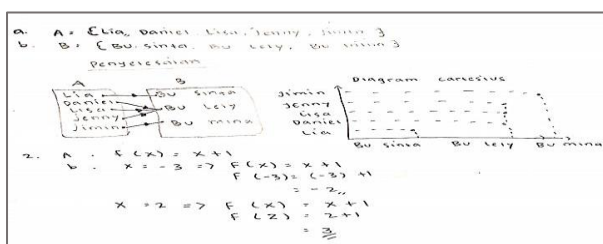 a. A = { Lia, Daniel, Lisa, Jenny, Jimin }
b. B = { Bu Sinta, Bu Lely, Bu Mina }
Penyelesaian
A B
Lia Bu Sinta
Daniel
Lisa Bu Lely
Jenny
Jimin Bu Mina
Diagram cartesius
Jimin
Jenny
Lisa
Daniel
Lia
Bu Sinta Bu Lely Bu Mina
2. A. F(x) = x+1
b. x = -3 => F(x) = x+1
F(-3) = (-3) +1
= -2,,
x = 2 => F(x) = x+1
F(2) = 2+1
= 3